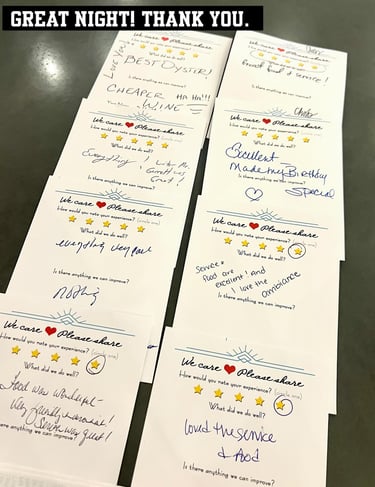 GREAT NIGHT! THANK YOU.
What did we do well?
BEST OYSTER!
Is there anything we can improve?
CHEAPER HA HA!!!
WINE
We care Please share
How would you rate your experience? (circle one)
What did we do well?
Everything !
Is there anything we can improve?
We care Please share
How would you rate your experience? (circle one)
What did we do well?
everything very good
Is there anything we can improve?
nothing
We care Please share
How would you rate your experience? (circle one)
What did we do well?
Food was wonderful -
Very friendly
Service was great!
are anything we can improve?
How would you rate your experience? (circle one)
What did we do well?
food & service!
Is there anything we can improve?
We care Please share
How would you rate your experience? (circle one)
What did we do well?
Excellent
Made my Birthday
Is there anything we can improve?
Special
We care Please share
How would you rate your experience? (circle one)
What did we do well?
Service &
food are
excellent! And
I love the ambiance
Is there anything we can improve?
We care Please share
How would you rate your experience? (circle one)
What did we do well?
loved the service
& food
Is there anything we can improve?